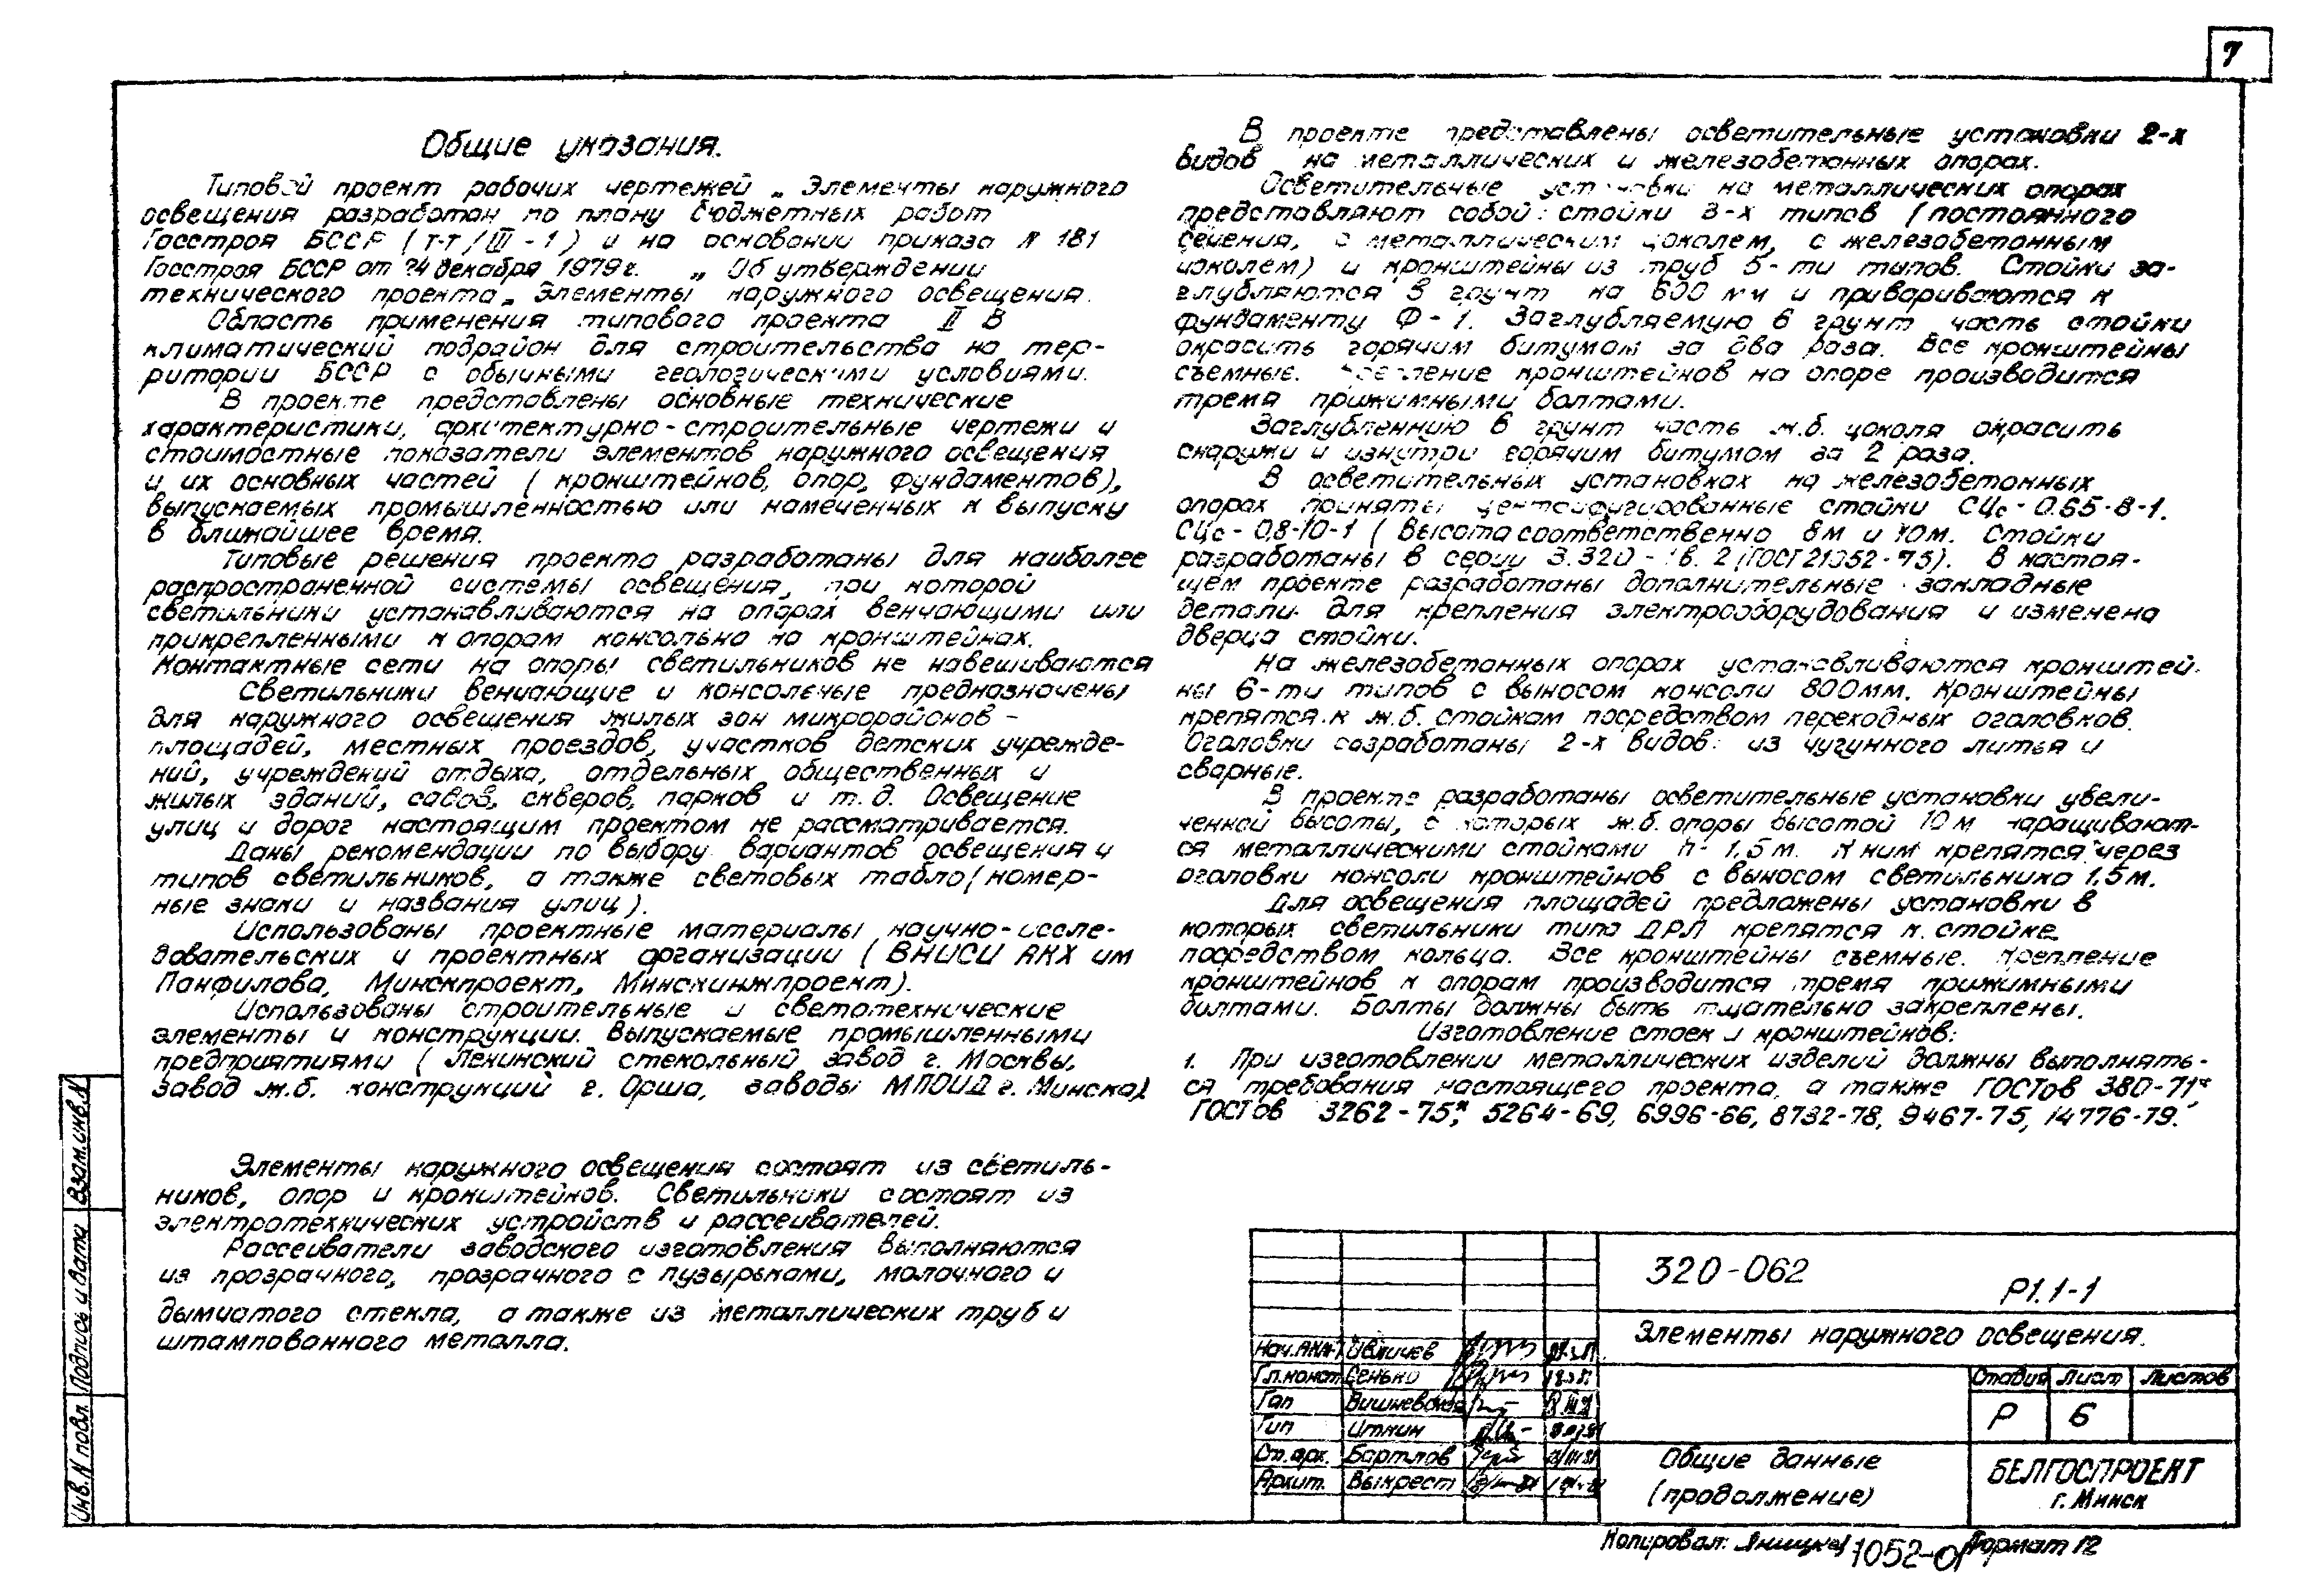 7
Общие указания.
Типовой проект рабочих чертежей „ Элементы наружного
освещения разработан по плану бюджетных работ
Госстроя БССР ( т-т / III - 1 ) и на основании приказа N 181
Госстроя БССР от 24 декабря 1979 г. „ Об утверждении
технического проекта „ Элементы наружного освещения.
Область применения типового проекта II В
климатический подрайон для строительства на тер-
ритории БССР с обычными геологическими условиями.
В проекте представлены основные технические
характеристики, архитектурно - строительные чертежи и
стоимостные показатели элементов наружного освещения
и их основных частей ( кронштейнов, опор, фундаментов),
выпускаемых промышленностью или намеченных к выпуску
в ближайшее время.
Типовые решения проекта разработаны для наиболее
распространенной системы освещения, при которой
светильники устанавливаются на опорах венчающими или
прикрепленными к опорам консольно на кронштейнах.
Контактные сети на опоры светильников не навешиваются
Светильники венчающие и консольные предназначены
для наружного освещения жилых зон микрорайонов -
площадей, местных проездов, участков детских учрежде-
ний, учреждений отдыха, отдельных общественных и
жилых зданий, садов, скверов, парков и т. д. Освещение
улиц и дорог настоящим проектом не рассматривается.
Даны рекомендации по выбору вариантов освещения и
типов светильников, а также световых табло ( номер-
ные знаки и названия улиц ).
Использованы проектные материалы научно - иссле-
довательских и проектных организации ( ВНИСИ АКХ им
Панфилова, Минскпроект, Минскинжпроект).
Использованы строительные и светотехнические
элементы и конструкции. Выпускаемые промышленными
предприятиями ( Ленинский стекольный завод г. Москвы,
завод ж.б. конструкций г. Орша, заводы МПОИД г. Минска)
Элементы наружного освещения состоят из светиль-
ников, опор и кронштейнов. Светильники состоят из
электротехнических устройств и рассеивателей.
Рассеиватели заводского изготовления выполняются
из прозрачного, прозрачного с пузырьками, молочного и
дымчатого стекла, а также из металлических труб и
штампованного металла.
В проекте представлены осветительные установки 2-х
видов на металлических и железобетонных опорах.
Осветительные установки на металлических опорах
представляют собой: стойки 3-х типов ( постоянного
сечения, с металлическим цоколем, с железобетонным
цоколем) и кронштейны из труб 5-ти типов. Стойки за-
глубляются в грунт на 600 мм и привариваются к
фундаменту Ф - 1. Заглубляемую в грунт часть стойки
окрасить горячим битумом за два раза. Все кронштейны
съемные. Крепление кронштейнов на опоре производится
тремя прижимными болтами.
Заглубленную в грунт часть ж.б. цоколя окрасить
снаружи и изнутри горячим битумом за 2 раза.
В осветительных установках на железобетонных
опорах приняты центрифугированные стойки СЦс - 0.65-8-1.
СЦс - 0,8-10-1 ( Высота соответственно 8м и 10м. Стойки
разработаны в серии 3.320 - 1 в. 2 (ГОСТ 21352-75). В настоя-
щем проекте разработаны дополнительные закладные
детали для крепления электрооборудования и изменена
дверца стойки.
На железобетонных опорах устанавливаются кронштей-
ны 6-ти типов с выносом консоли 800мм. Кронштейны
крепятся к ж.б. стойкам посредством переходных оголовков.
Оголовки разработаны 2-х видов: из чугунного литья и
сварные.
В проекте разработаны осветительные установки увели-
ченной высоты, в которых ж.б. опоры высотой 10 м наращивают-
ся металлическими стойками h - 1,5 м. К ним крепятся через
оголовки консоли кронштейнов с выносом светильника 1,5 м.
Для освещения площадей предложены установки в
которых светильники типа ДРЛ крепятся к стойке
посредством кольца. Все кронштейны съемные. Крепление
кронштейнов к опорам производится тремя прижимными
болтами. Болты должны быть тщательно закреплены.
Изготовление стоек и кронштейнов:
1. При изготовлении металлических изделий должны выполнять-
ся требования настоящего проекта, а также ГОСТов 380-71*,
ГОСТов 3262-75*, 5264-69, 6996-66, 8732-78, 9467-75, 14776-79.
320-062
Р1.1-1
Элементы наружного освещения.
Нач. АКМ-1 Ивличев
Гл.конст. Сенько
Гап Вишневская
Гип Иткин
Ст.арх. Бартлов
Архит. Выкрест
Стадия Лист Листов
Р 6
Общие данные
(продолжение)
БЕЛГОСПРОЕКТ
г. Минск
Копировал: 1052-01 Формат 12
Взам.инв.N
Подпись и дата
Инв.N подл.